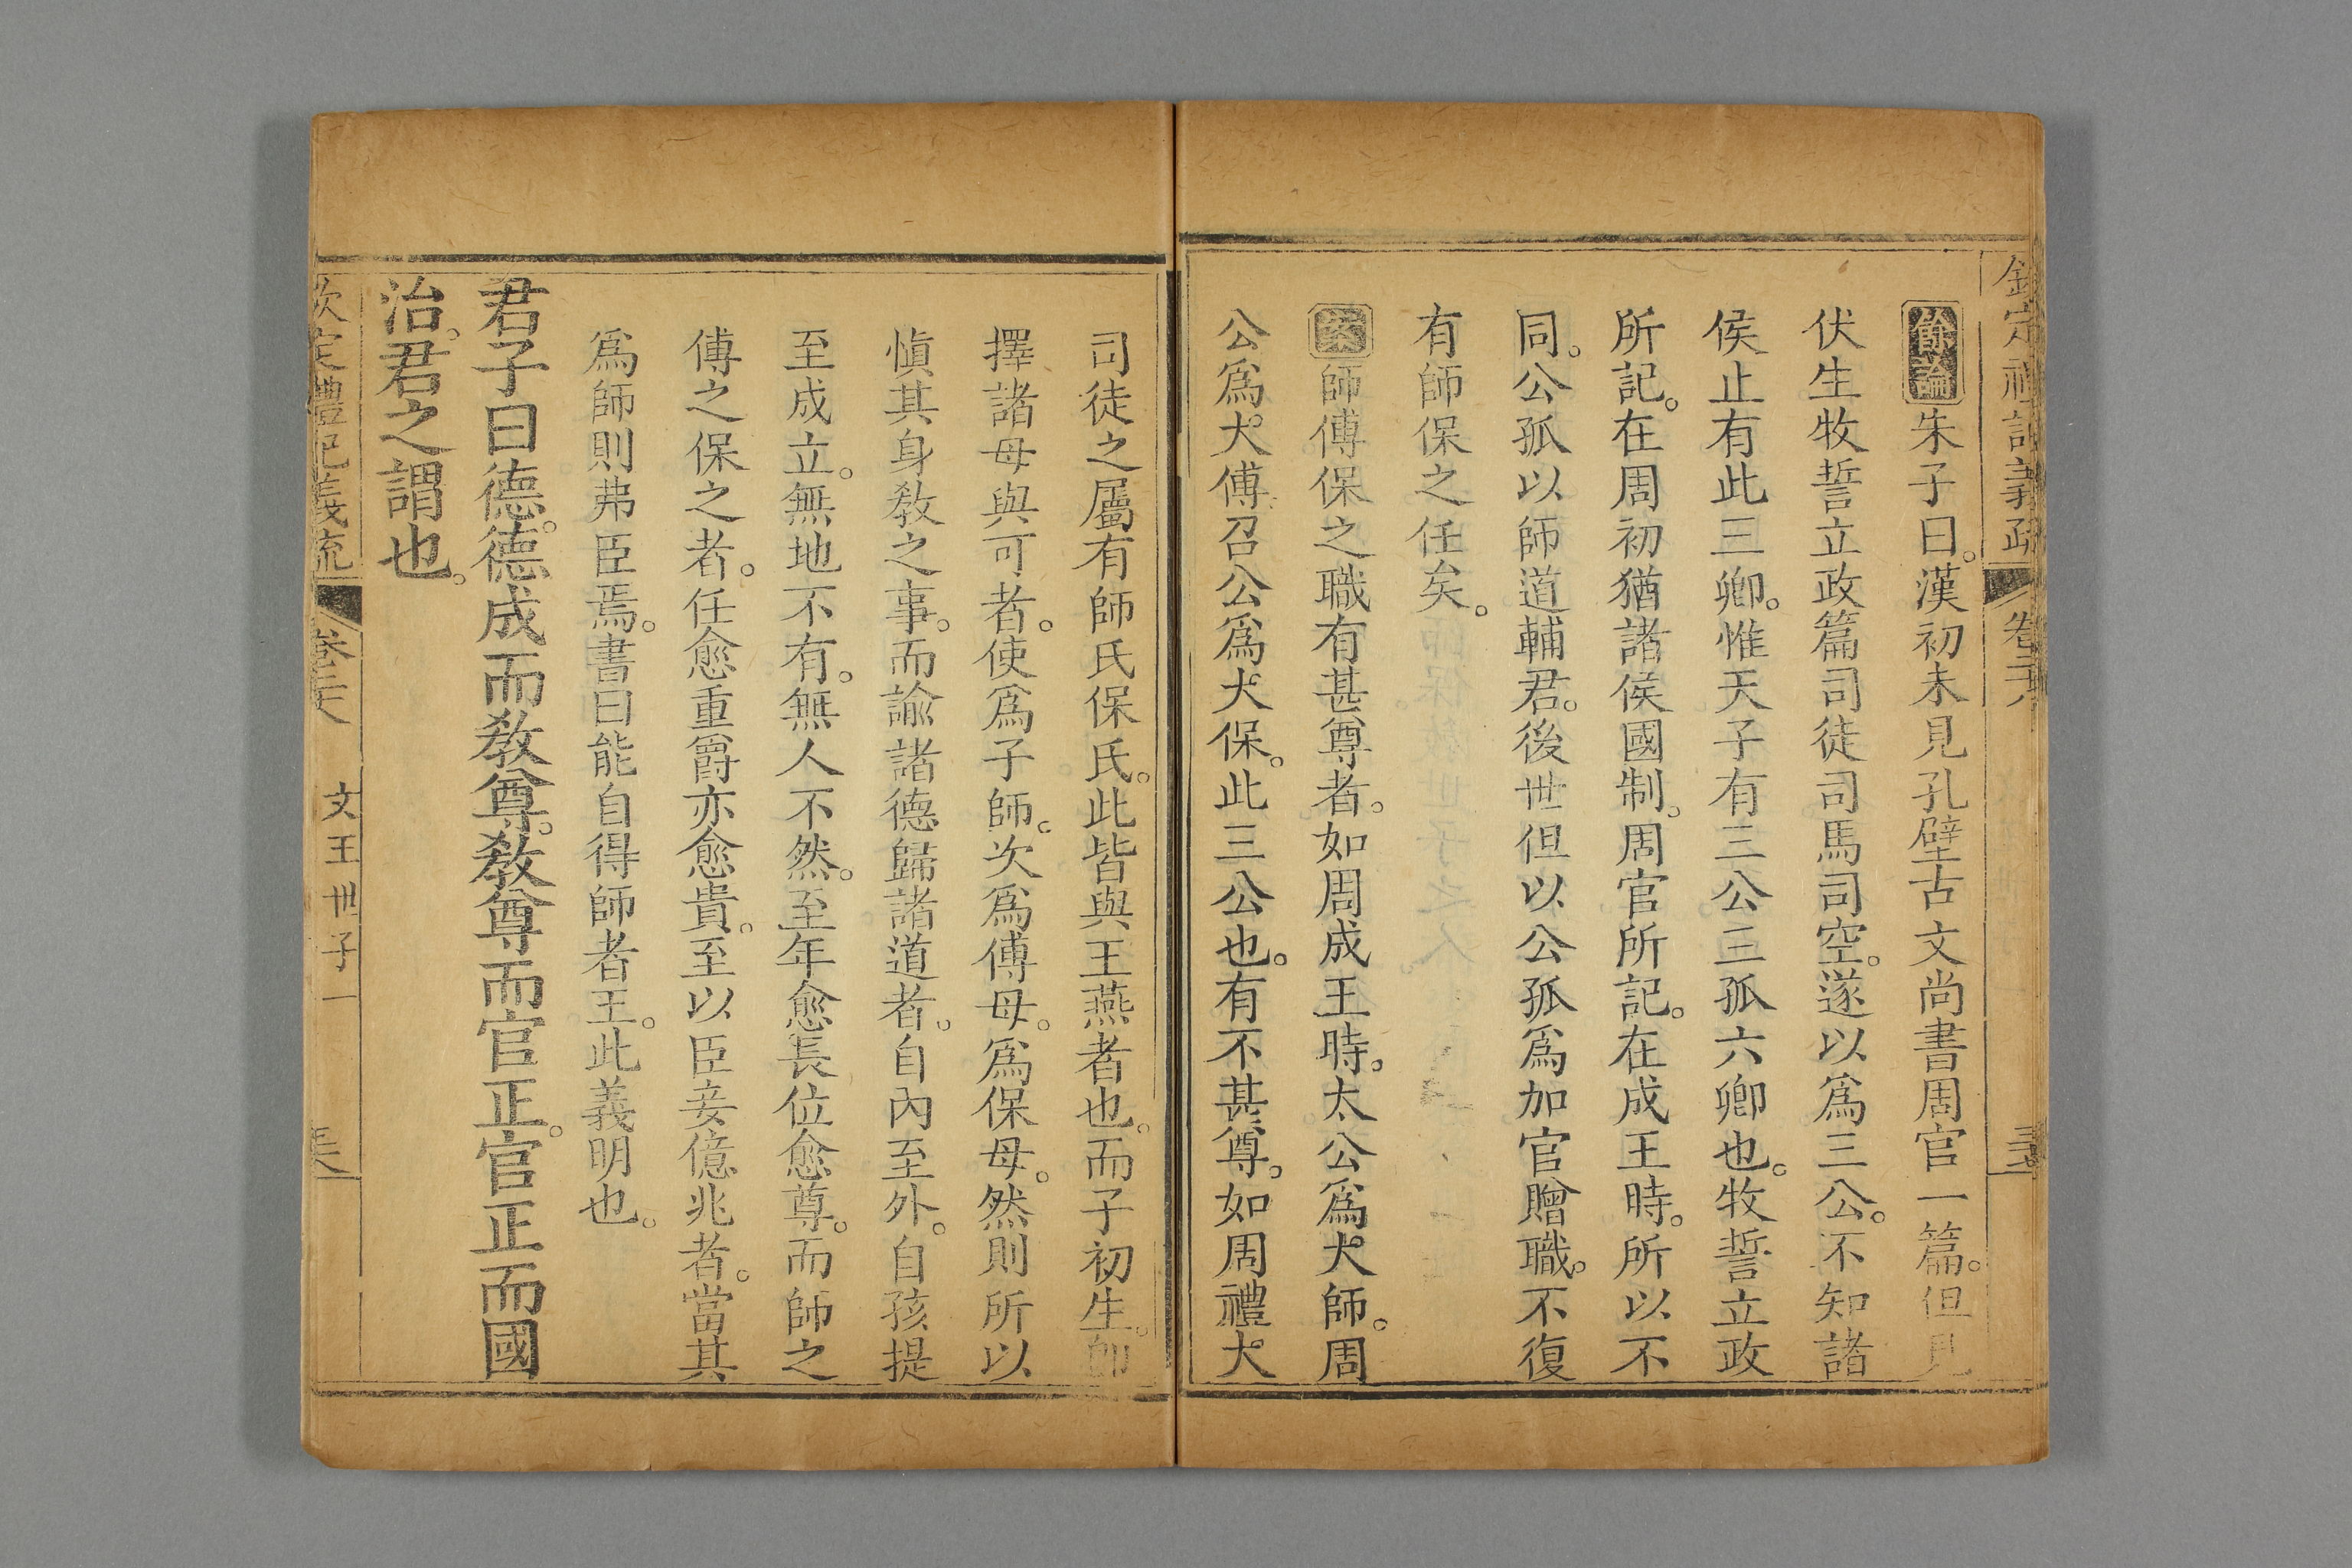 欽定禮記義疏 卷二十八
餘論朱子曰。漢初未見孔壁古文尚書周官一篇。但見
伏生牧誓立政篇司徒司馬司空。遂以爲三公。不知諸
侯止有此三卿。惟天子有三公三孤六卿也。牧誓立政
所記。在周初猶諸侯國制。周官所記。在成王時。所以不
同。公孤以師道輔君。後世但以公孤爲加官贈職。不復
有師保之任矣。
案師傅保之職有甚尊者。如周成王時。太公爲太師。周
公爲太傅召公爲太保。此三公也。有不甚尊。如周禮大
司徒之屬有師氏保氏。此皆與王燕者也。而子初生。卽
擇諸母與可者。使爲子師。次爲傅母。爲保母。然則所以
愼其身敎之事。而諭諸德歸諸道者。自內至外。自孩提
至成立。無地不有。無人不然。至年愈長位愈尊。而師之
傅之保之者。任愈重爵亦愈貴。至以臣妾億兆者。當其
爲師則弗臣焉。書曰能自得師者王。此義明也。
君子曰德。德成而敎尊。敎尊而官正。官正而國
治。君之謂也。
欽定禮記義疏 卷二十八 文王世子一